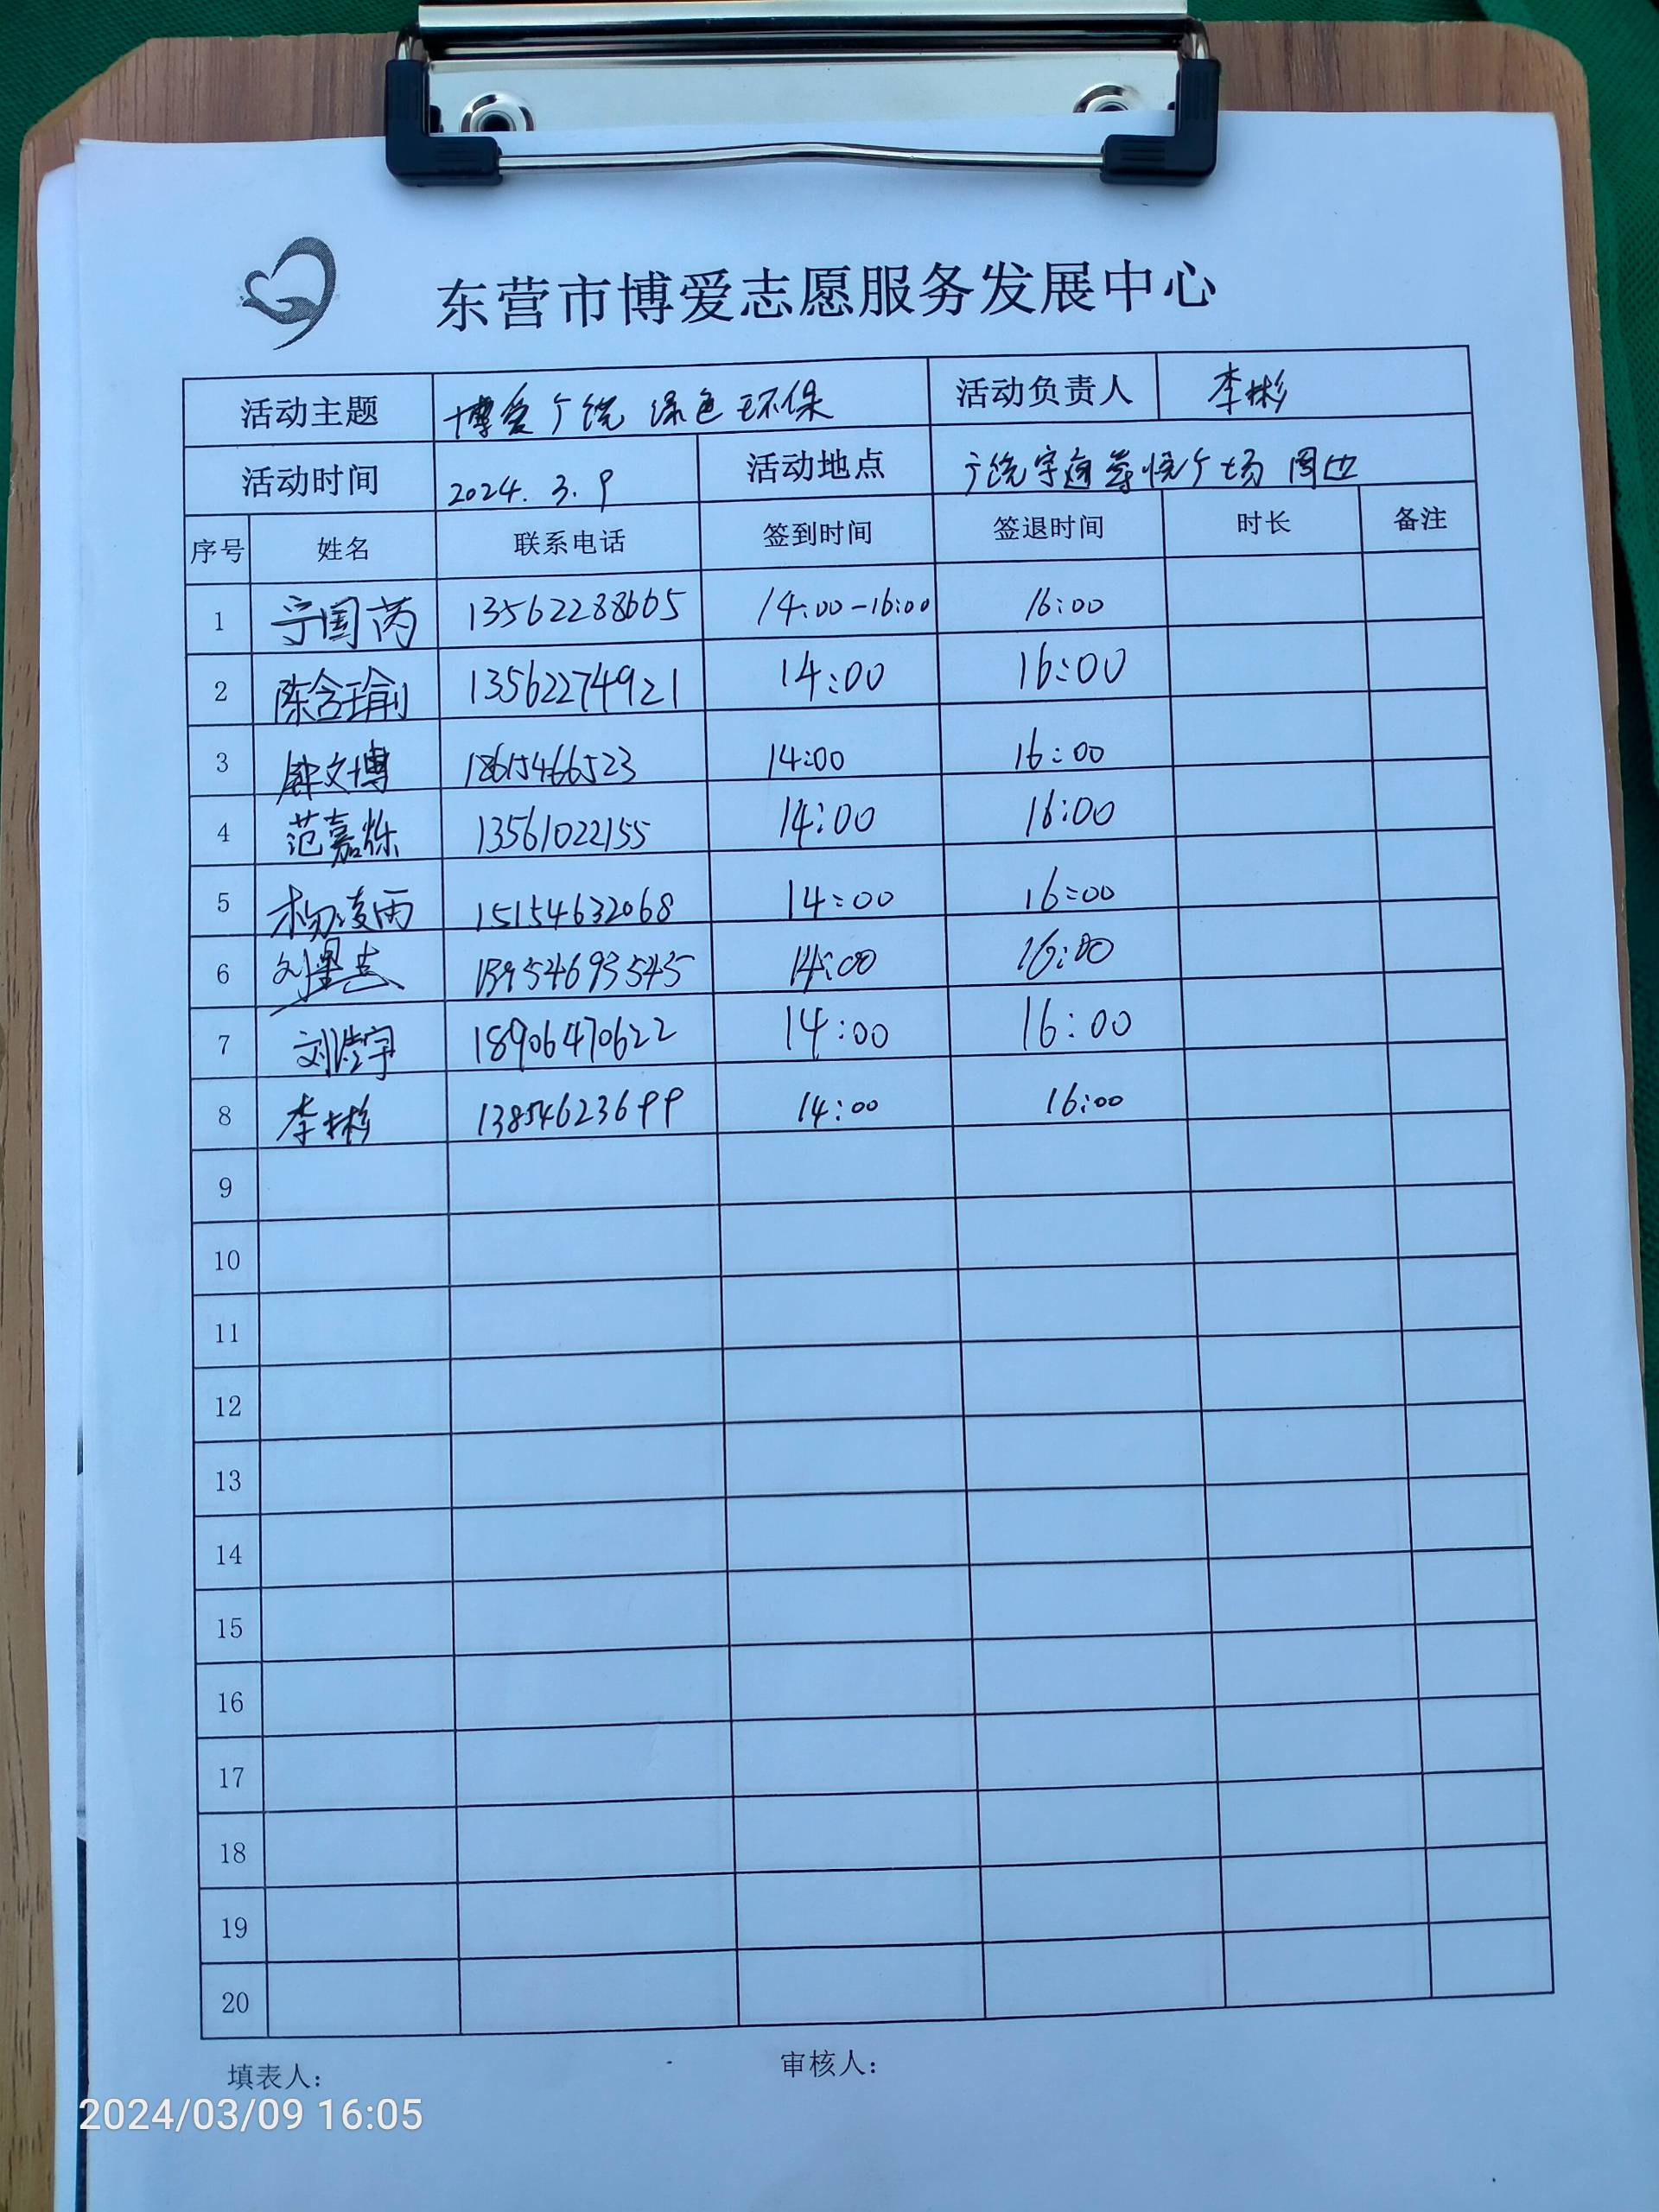 东营市博爱志愿服务发展中心
活动主题 博爱广饶 绿色环保 活动负责人 李彬
活动时间 2024. 3. 9 活动地点 广饶宇通尊悦广场 周边
序号 姓名 联系电话 签到时间 签退时间 时长 备注
1 宁国芮 13562288605 14:00-16:00 16:00
2 陈含瑜 13562274921 14:00 16:00
3 文博 18615466523 14:00 16:00
4 范嘉烁 13561022155 14:00 16:00
5 杨凌雨 15154632068 14:00 16:00
6 刘星志 14:00 16:00
7 刘浩宇 18906470622 14:00 16:00
8 李彬 13854623699 14:00 16:00
9
10
11
12
13
14
15
16
17
18
19
20
填表人: 审核人:
2024/03/09 16:05